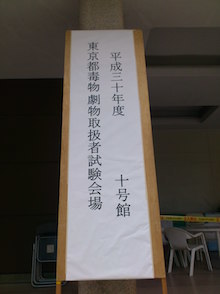 平成三十年度
東京都毒物劇物取扱者試験会場
十号館